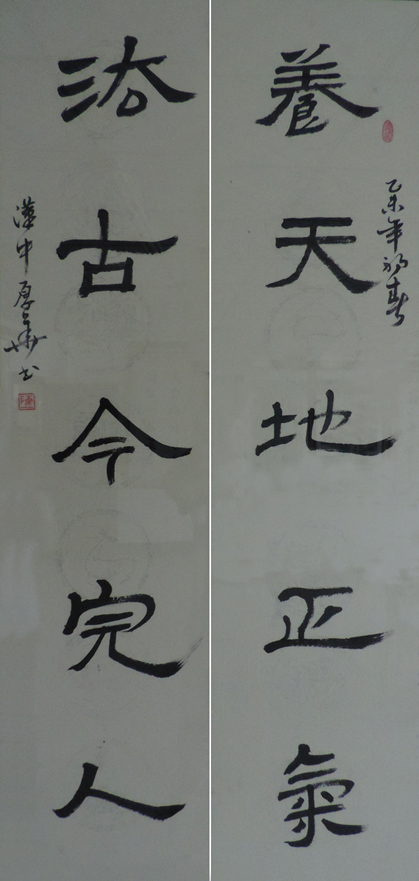 乙未年初春
養天地正氣
法古今完人
漢中厚華书